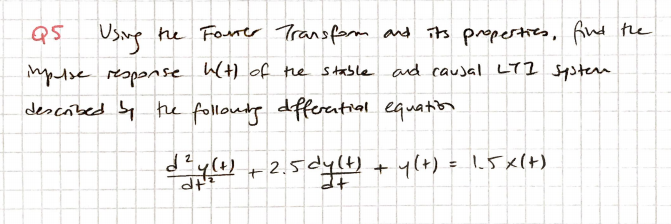 Q5 Using the Fourier Transform and its properties, find the
impulse response h(t) of the stable and causal LTI system
described by the following differential equation
d²y(t)/dt² + 2.5 dy(t)/dt + y(t) = 1.5x(t)